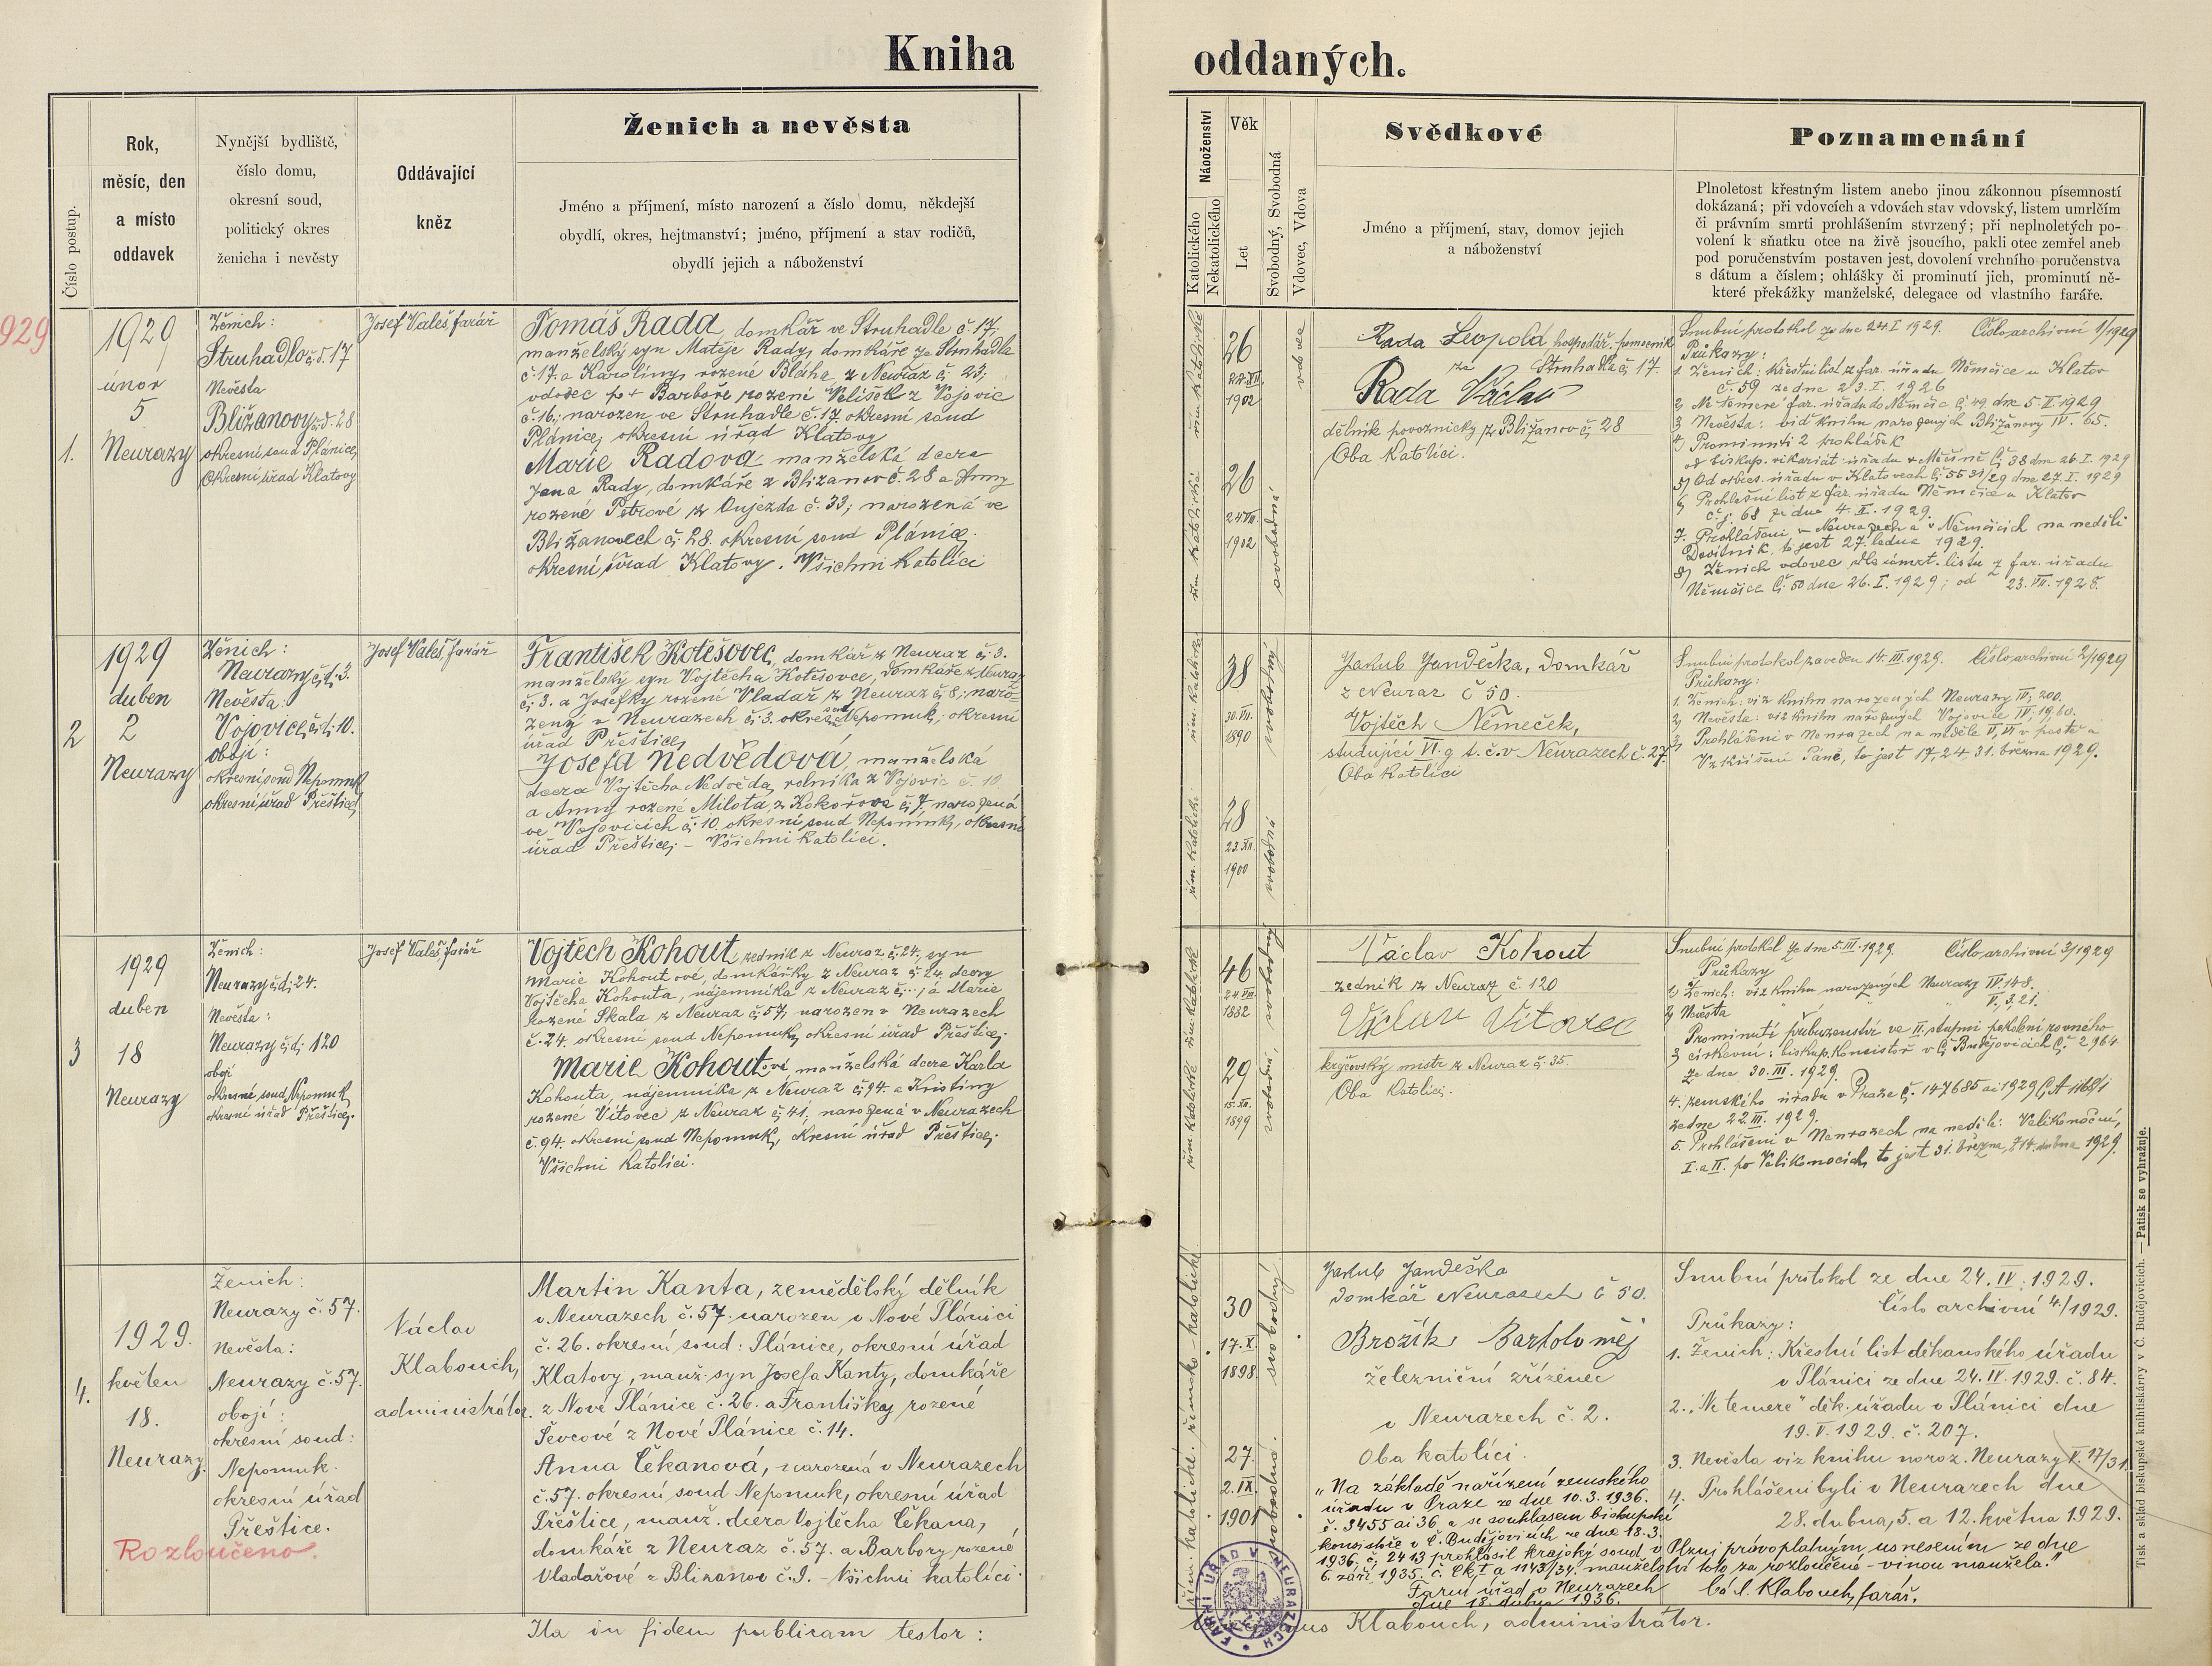 Kniha oddaných.
Číslo postup.
Rok,
měsíc, den
a místo
oddavek
Nynější bydliště,
číslo domu,
okresní soud,
politický okres
ženicha i nevěsty
Oddávající
kněz
Ženich a nevěsta
Jméno a příjmení, místo narození a číslo domu, někdejší
obydlí, okres, hejtmanství; jméno, příjmení a stav rodičů,
obydlí jejich a náboženství
Náboženství
Katolického
Nekatolického
Věk
Let
Svobodný, Svobodná
Vdovec, Vdova
Svědkové
Jméno a příjmení, stav, domov jejich
a náboženství
Poznamenání
Plnoletost křestným listem anebo jinou zákonnou písemností
dokázaná; při vdovcích a vdovách stav vdovský, listem umrlčím
či právním smrti prohlášením stvrzený; při neplnoletých po-
volení k sňatku otce na živě jsoucího, pakli otec zemřel aneb
pod poručenstvím postaven jest, dovolení vrchního poručenstva
s dátum a číslem; ohlášky či prominutí jich, prominutí ně-
které překážky manželské, delegace od vlastního faráře.
929
1.
1929
únor
5
Neurazy
Ženich:
Struhadlo č.d. 17
Nevěsta
Bližanovy č.d. 28
okresní soud Plánice,
Okresní úřad Klatovy
Josef Valeš, farář
Tomáš Rada domkář ve Struhadle č. 17.
manželský syn Matěje Rady, domkáře ze Struhadla
č. 17. a Karolíny, rozené Bláha z Neuraz č. 23;
vdovec po + Barboře rozené Velíšek z Vojovic
č. 16; narozen ve Struhadle č. 17. okresní soud
Plánice, okresní úřad Klatovy
Marie Radová manželská dcera
Jana Rady, domkáře z Bližanov č. 28 a Anny
rozené Petrové z Oujezda č. 33; narozená ve
Bližanovech č. 28. okresní soud Plánice,
okresní úřad Klatovy. Všichni katolíci
řím. katolické
26
1902
vdovec
řím. katolická
26
24.VII.
1902
svobodná
Rada Leopold hospodář. pomocník
ze Struhadla č. 17.
Rada Václav
dělník povoznický z Bližanov č. 28
Oba katolíci.
Snubní protokol ze dne 24.I 1929. Číslo archivní 1/1929
Průkazy:
1. Ženich: křestní list z far. úřadu Němčice u Klatov
č. 59 ze dne 23. I. 1926
2, "Ne temere" far. úřadu do Němčic č. 49. dne 5. II. 1929
3 Nevěsta: vid knihu narozených Bližanovy IV. 65.
4) Prominutí 2 prohlášek
od biskup. vikariát. úřadu v Měčíně č. 38 dne 26. I. 1929
5) Od okres. úřadu v Klatovech č. 5531/29 dne 27. I. 1929
6, Prohlášní list z far. úřadu Němčice u Klatov
č.j. 68 ze dne 4. II. 1929.
7. Prohlášeni v Neurazech a v Němčicích na neděli
Devítník, to jest 27. ledna 1929.
8) Ženich vdovec dle úmrt. listu z far. úřadu
Němčice č. 50 dne 26. I. 1929; od 23. VII. 1928.
2
1929
duben
2
Neurazy
Ženich:
Neurazy č.d. 3.
Nevěsta:
Vojovice č.d. 10.
obojí:
okresní soud Nepomuk
okresní úřad Přeštice,
Josef Valeš, farář
František Kotěšovec, domkář z Neuraz č. 3.
manželský syn Vojtěcha Kotěšovce, domkáře z Neuraz
č. 3. a Josefky rozené Vladař, z Neuraz č. 8; naro-
zený v Neurazech č. 3. okres. soud Nepomuk, okresní
úřad Přeštice,
Josefa Nedvědová, manželská
dcera Vojtěcha Nedvěda, rolníka z Vojovic č. 10
a Anny rozené Milota z Kokořova č. 7. narozená
ve Vojovicích č. 10. okresní soud Nepomuk, okresní
úřad Přeštice, - Všichni katolíci.
řím. katolické
38
30.VII.
1890
svobodný
řím. katolické
28
23.XII.
1900
svobodná
Jakub Jandečka, domkář
z Neuraz č 50.
Vojtěch Němeček,
studující VI. g. t. č. v Neurazech č. 27.
Oba katolíci
Snubní protokol zaveden 14. III. 1929. Číslo archivní 2/1929
Průkazy:
1. Ženich: viz knihu narozených Neurazy IV, 200.
2, Nevěsta: viz knihu narozených Vojovice IV, 1960.
3 Prohlášeni v Neurazech na neděle V, VI v postě a
Vzkříšení Páně, to jest 17, 24, 31. března 1929.
3
1929
duben
18
Neurazy
Ženich:
Neurazy č.d. 24.
Nevěsta:
Neurazy č.d. 120
obojí
okresní soud Nepomuk
okresní úřad Přeštice.
Josef Valeš, farář
Vojtěch Kohout, zedník z Neuraz č. 24, syn
Marie Kohoutové, domkářky z Neuraz č. 24, dcery
Vojtěcha Kohouta, nájemníka z Neuraz č. ... , a Marie
rozené Skala z Neuraz č. 57, narozen v Neurazech
č. 24. okresní soud Nepomuk, okresní úřad Přeštice.
Marie Kohoutová, manželská dcera Karla
Kohouta, nájemníka z Neuraz č. 94. a Kristiny
rozené Vítovec z Neuraz č. 41, narozená v Neurazech
č. 94. okresní soud Nepomuk, okresní úřad Přeštice.
Všichni katolíci.
řím. katolické
46
1882
svobodný
řím. katolické
29
15.XII.
1899
svobodná
Václav Kohout
zedník z Neuraz č. 120
Václav Vítovec
krejčovský mistr z Neuraz č. 35.
Oba katolíci.
Snubní protokol ze dne 5. III. 1929. Číslo archivní 3/1929
Průkazy
1) Ženich: viz knihu narozených Neurazy IV. 148.
2) Nevěsta " " " V, 3, 21.
Prominutí příbuzenství ve II. stupni pobočním rovného
3 církevní: biskup. konsistoř v Č. Budějovicích č. 2964.
ze dne 30. III. 1929.
4. zemského úřadu v Praze č. 147685 ai 1929
ze dne 22. III. 1929.
5. Prohlášeni v Neurazech na neděle: Velikonoční,
I. a II. po Velikonocích, to jest 31. března, 7 14. dubna 1929.
4.
1929.
květen
18.
Neurazy.
Rozloučeno.
Ženich:
Neurazy č. 57.
nevěsta:
Neurazy č. 57.
obojí:
okresní soud:
Nepomuk.
okresní úřad
Přeštice.
Václav
Klabouch,
administrátor.
Martin Kanta, zemědělský dělník
v Neurazech č. 57. narozen v Nové Plánici
č. 26. okresní soud: Plánice, okresní úřad
Klatovy, manž. syn Josefa Kanty, domkáře
z Nové Plánice č. 26. a Františky rozené
Ševcové z Nové Plánice č. 14.
Anna Čekanová, narozená v Neurazech
č. 57. okresní soud Nepomuk, okresní úřad
Přeštice, manž. dcera Vojtěcha Čekana,
domkáře z Neuraz č. 57. a Barbory rozené
Vladařové z Blizanov č. 9. - Všichni katolíci.
římsko-katolické
30
17.X.
1898.
svobodný
řím. katolické.
27.
2.IX.
1901
svobodná.
Jakub Jandečka
domkář Neurazech č 50.
Brožík Bartoloměj
železniční zřízenec
v Neurazech č. 2.
Oba katolíci.
Snubní protokol ze dne 24. IV. 1929.
Číslo archivní 4./1929.
Průkazy:
1. Ženich: Křestní list děkanského úřadu
v Plánici ze dne 24. IV. 1929. č. 84.
2. "Ne temere" děk. úřadu v Plánici dne
19. V. 1929. č. 207.
3. Nevěsta viz knihu naroz. Neurazy V. 17/31.
4. Prohlášeni byli v Neurazech dne
28. dubna, 5. a 12. května 1929.
"Na základě nařízení zemského
úřadu v Praze ze dne 10. 3. 1936.
č. 3455 ai 36 a se souhlasem biskupské
konsistoře v Č. Budějovicích ze dne 18. 3.
1936. č. 2413 prohlásil krajský soud v Plzni právoplatným usnesením ze dne
6. září 1935. č. Ck I a 1143/34. manželství toto za rozloučené - vinou manžela."
Farní úřad v Neurazech
dne 18. dubna 1936.
Václ. Klabouch, farář.
Ita in fidem publicam testor:
Klabouch, administrátor.
FARNÍ ÚŘAD V NEURAZECH
Tisk a sklad biskupské knihtiskárny v Č. Budějovicích. — Patisk se vyhražuje.